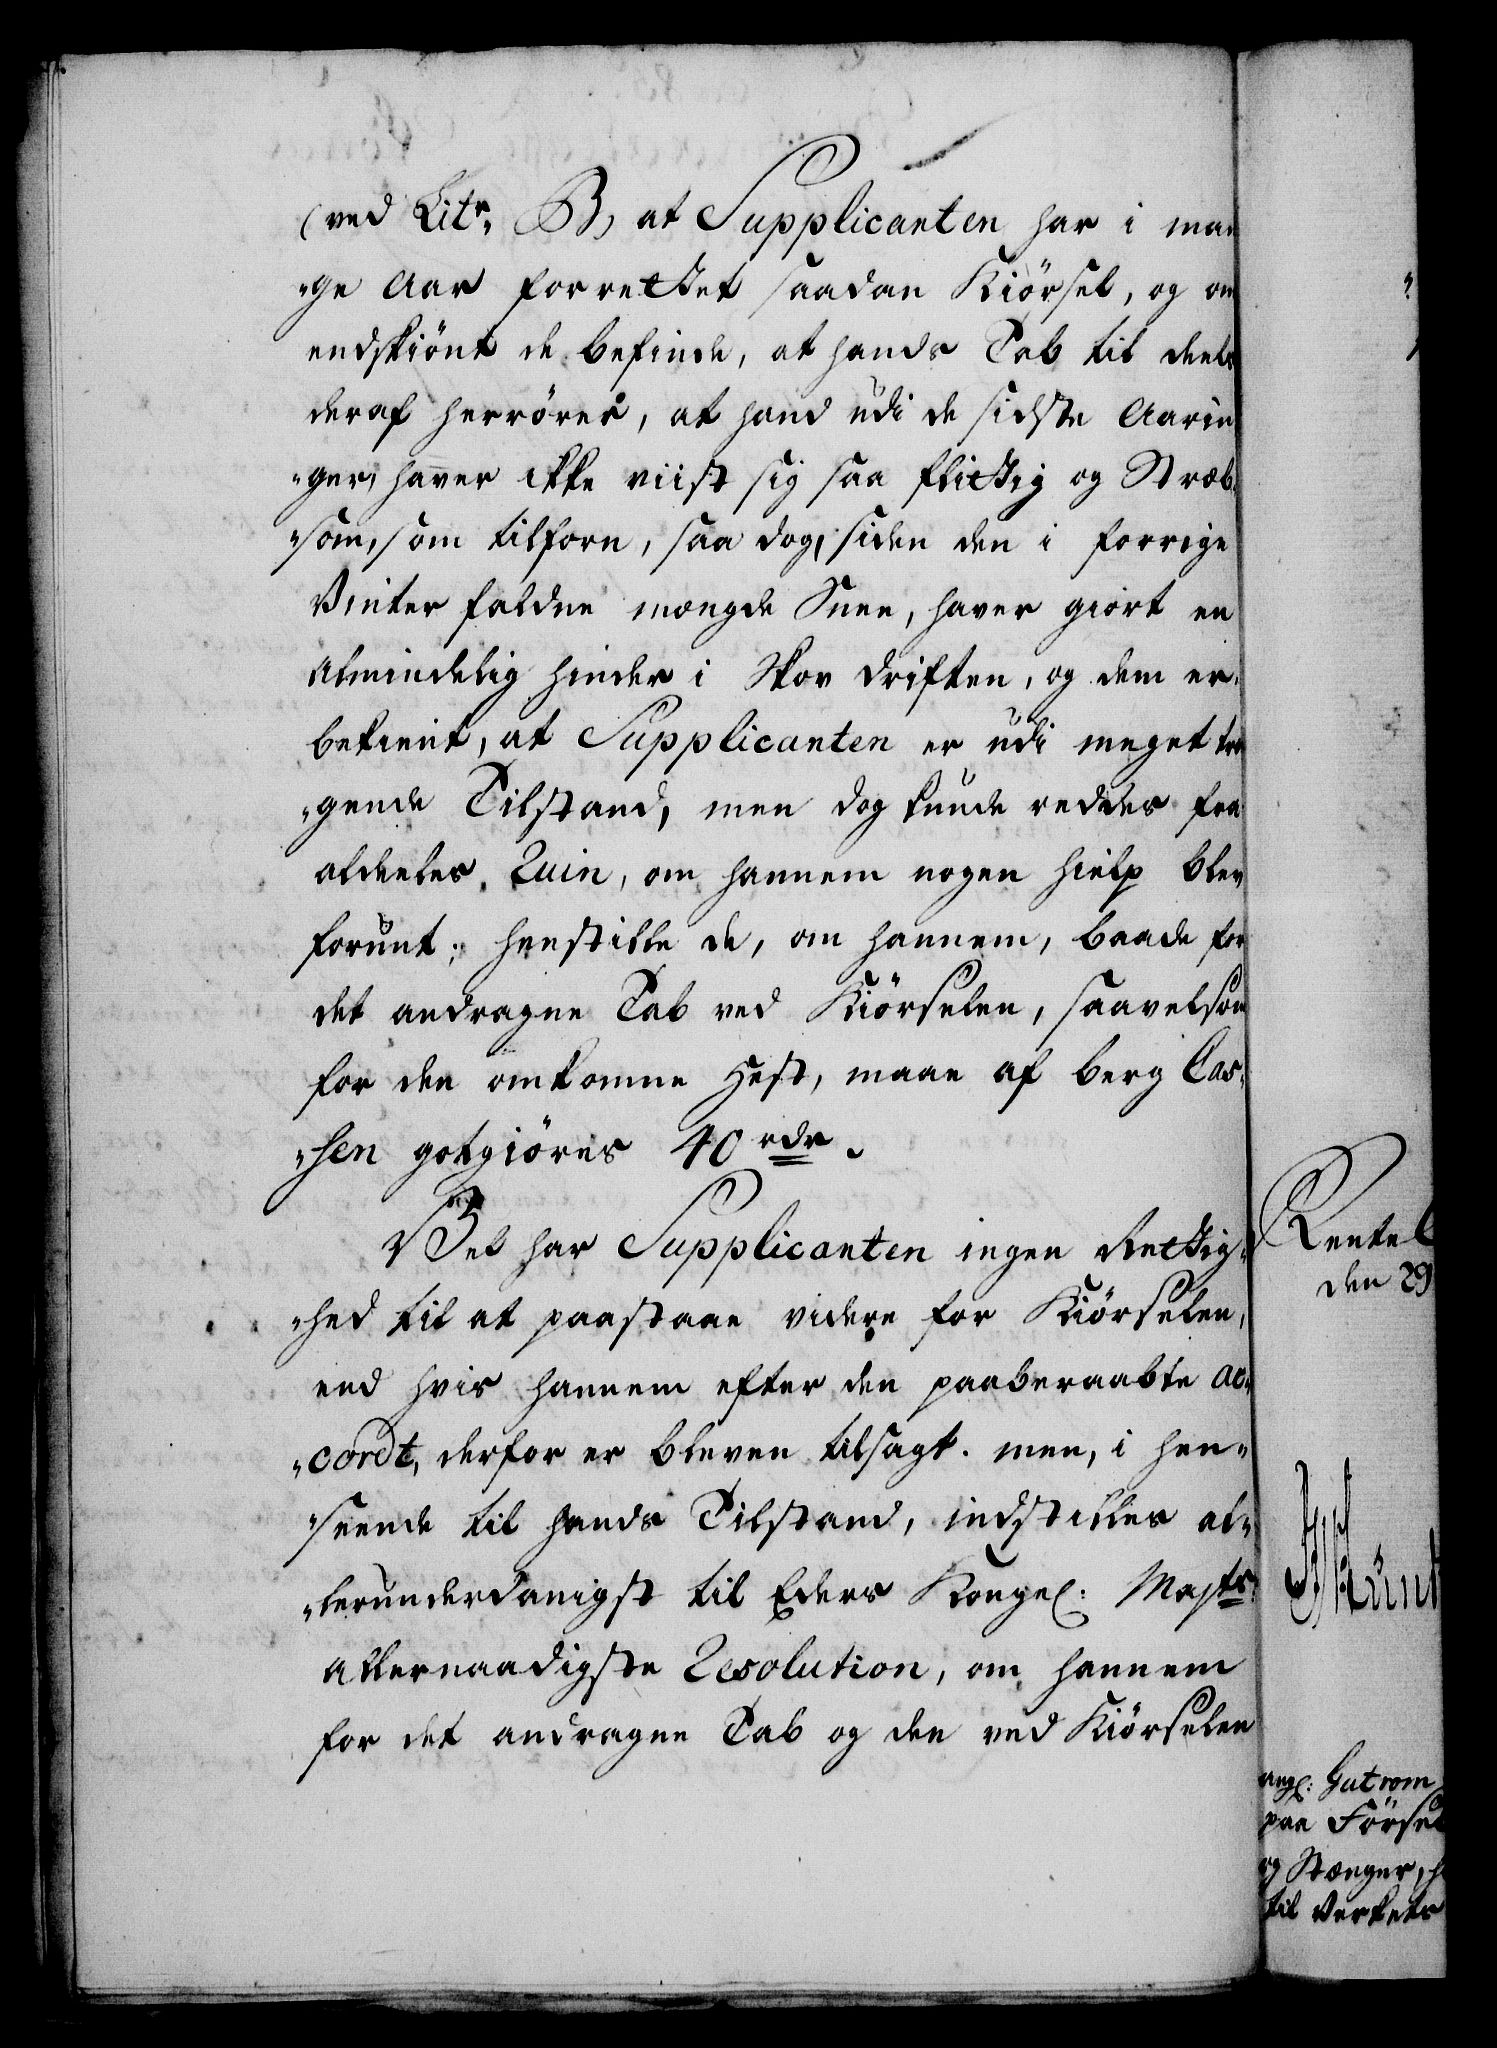 (ved Litr. B) at Supplicanten har i man
„ge Aar forrettet saadan Kiörsel, og om
endskiönt de befinde, at hands Tab til deels
deraf herrörer, at hand udi de sidste Aarin
„ger, haver ikke viist sig saa flittig og Stræb„
„som, som tilforn, saa dog, siden den i forrige
Vinter faldne mængde Snee, haver giort en
Almindelig hinder i Skov driften, og dem er
bekient, at Supplicanten er udi meget træn
„gende Tilstand, men dog kunde reddes fra
aldeeles Ruin, om hannem nogen hielp blev
forunt; heenstille de, om hannem, baade for
det andragne Tab ved Kiörselen, saavelsom
for den omkomne Hest, maae af berg Cas„
„sen gotgiöres 40 rdr.
Vel har Supplicanten ingen Rettig„
„hed til at paastaae videre for Kiörselen,
end hvis hannem efter den paaberaabte ac„
„cordt, derfor er bleven tilsagt. men, i hen„
„seende til hands Tilstand, indstilles al„
„lerunderdanigst til Eders Kongel: Maj:ts
allernaadigste Resolution, om hannem
for det andragne Tab og den ved Kiörselen
Rentek
den 29
ang: Gutrom
paa Försel
og Stænger, h
til Verkets